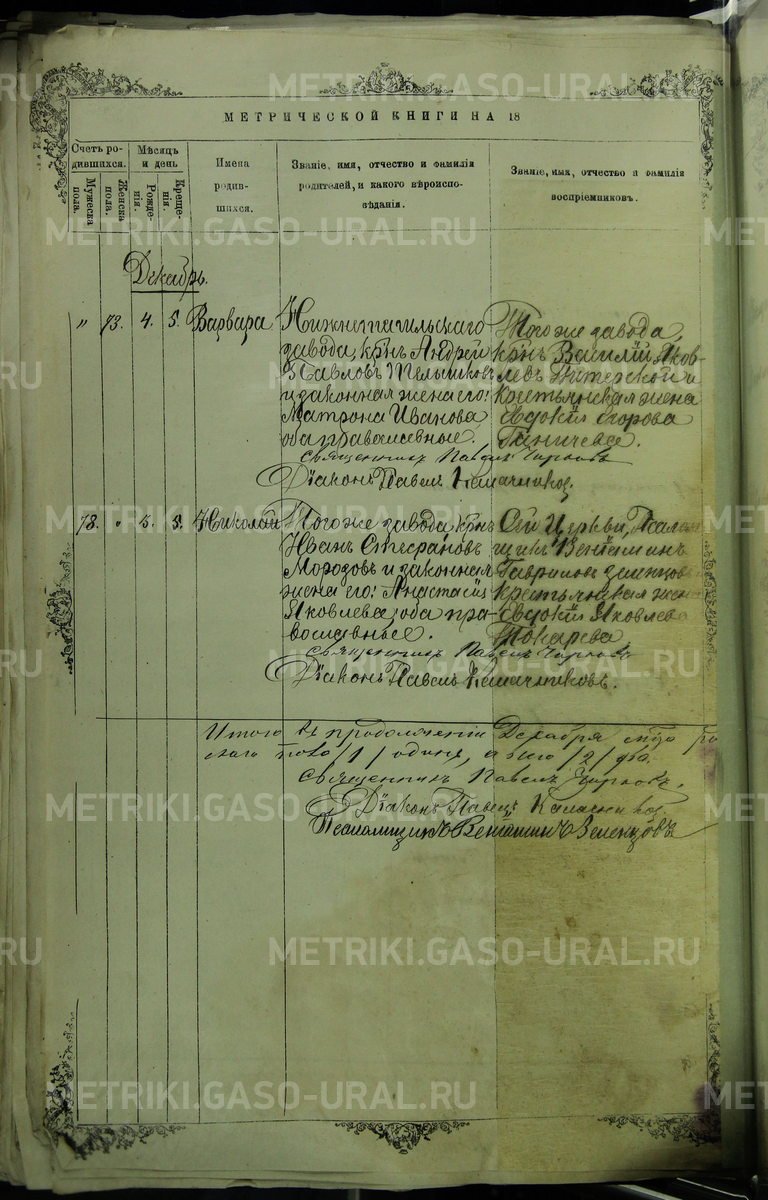 МЕТРИЧЕСКОЙ КНИГИ НА 18
Счетъ родившихся.
Мужеска пола.
Женска пола.
Мѣсяцъ и день
Рожденія.
Крещенія.
Имена родившихся.
Званіе, имя, отчество и фамилія родителей, и какого вѣроисповѣданія.
Званіе, имя, отчество и фамилія воспріемниковъ.
Декабрь.
" 73. 4. 5. Варвара
Нижнетагильскаго
завода, кр҃нъ Андрей
Павловъ
и законная жена его:
Матрона Иванова,
оба православные.
Того же завода,
кр҃нъ Василій Яков-
левъ Питерской и
крестьянская жена
Евдокія Егорова
Ганичева.
Священникъ Павелъ
Діаконъ Павелъ Калачниковъ.
78. " 5. 5. Николай
Того же завода, кр҃нъ
Иванъ Стефановъ
Морозовъ и законная
жена его: Анастасія
Яковлева, оба пра-
вославные.
Сей Церкви, Псалом
щикъ Веніаминъ
Гавриловъ Зеленцов
крестьянская жена
Евдокія Яковлева
Токарева.
Священникъ Павелъ
Діаконъ Павелъ Калачниковъ.
Итого въ продолженіи Декабря м҃ца
/1/ одинъ, /2/ два.
Священникъ Павелъ
Діаконъ Павелъ Калачниковъ
Псаломщикъ Веніаминъ Зеленцовъ
METRIKI.GASO-URAL.RU